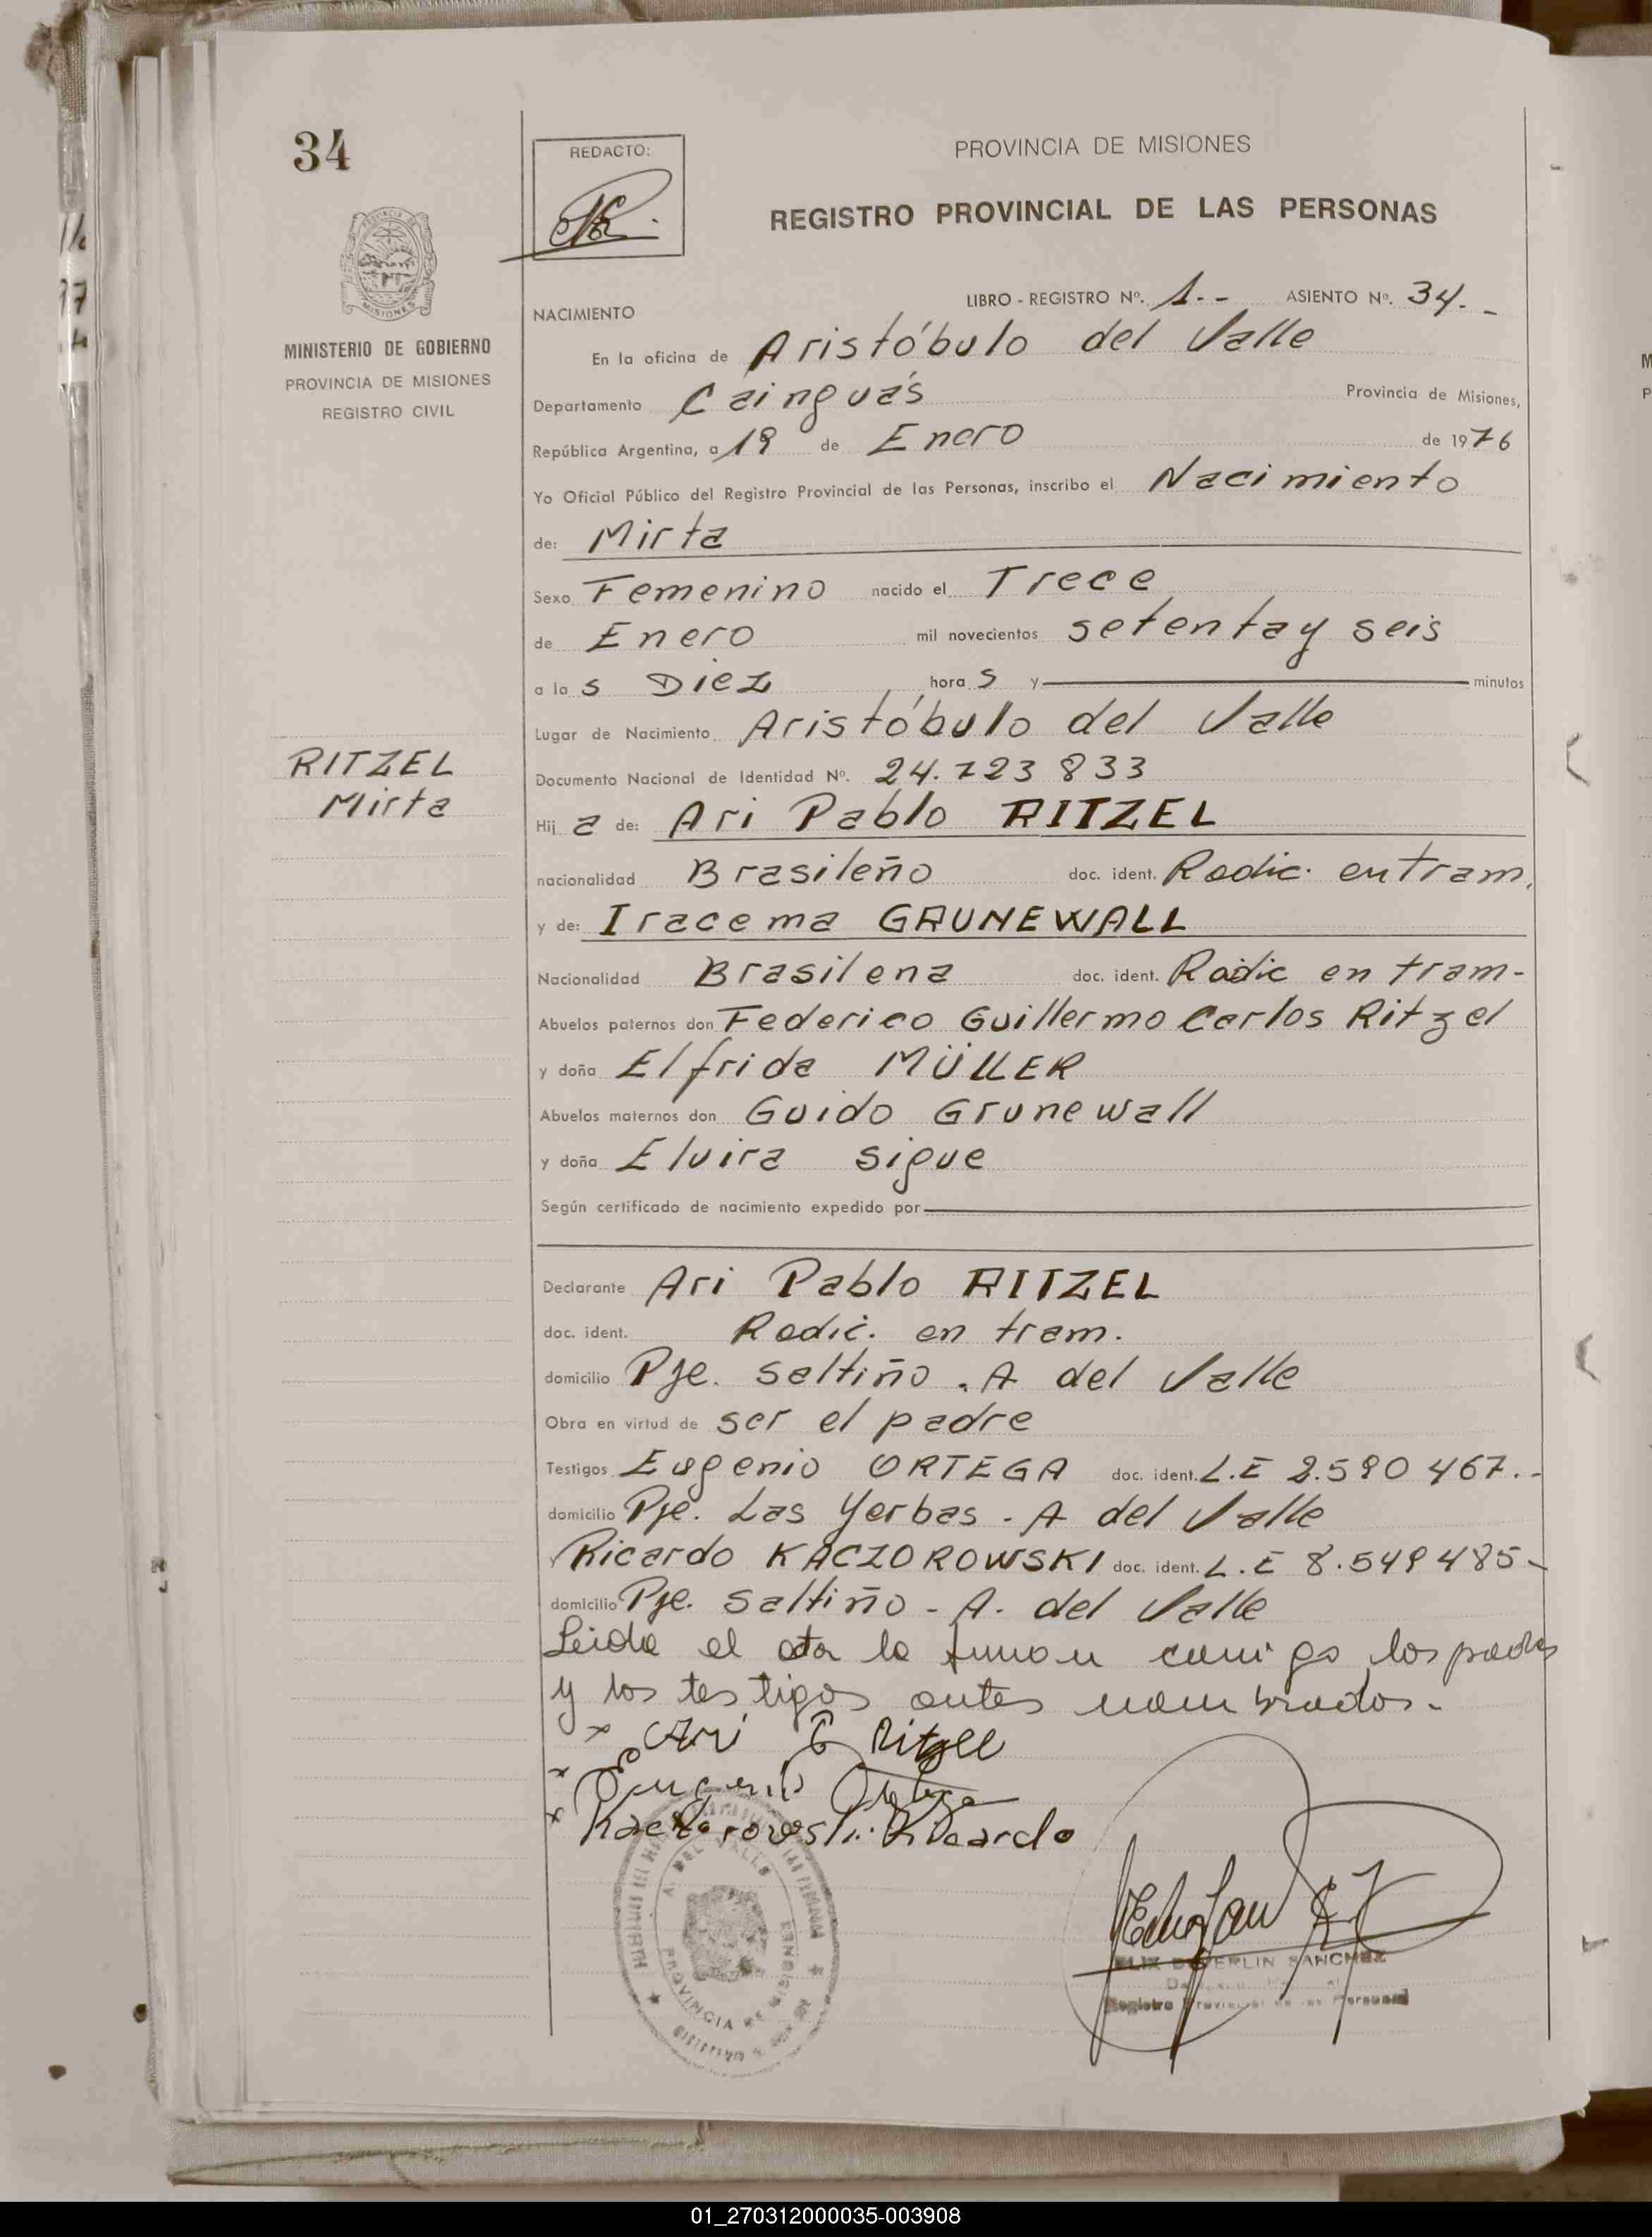 34
REDACTO:
PROVINCIA DE MISIONES
REGISTRO PROVINCIAL DE LAS PERSONAS
MINISTERIO DE GOBIERNO
PROVINCIA DE MISIONES
REGISTRO CIVIL
LIBRO - REGISTRO Nº. 1.-- ASIENTO Nº. 34.-
NACIMIENTO
En la oficina de Aristóbulo del Valle
Departamento Cainguás Provincia de Misiones,
República Argentina, a 19 de Enero de 1976
Yo Oficial Público del Registro Provincial de las Personas, inscribo el Nacimiento
de: Mirta
Sexo Femenino nacido el Trece
de Enero mil novecientos setenta y seis
a la s Diez hora s y minutos
Lugar de Nacimiento Aristóbulo del Valle
RITZEL
Mirta
Documento Nacional de Identidad Nº. 24.723 833
Hij a de: Ari Pablo RITZEL
nacionalidad Brasileño doc. ident. Radic. en tram.
y de: Iracema GRUNEWALL
Nacionalidad Brasilena doc. ident. Radic en tram-
Abuelos paternos don Federico Guillermo Carlos Ritzel
y doña Elfrida MÜLLER
Abuelos maternos don Guido Grunewall
y doña Elvira sigue
Según certificado de nacimiento expedido por
Declarante Ari Pablo RITZEL
doc. ident. Radic. en tram.
domicilio Pje. saltiño . A del Valle
Obra en virtud de ser el padre
Testigos Eugenio ORTEGA doc. ident. L.E 2.590 467.-
domicilio Pje. Las Yerbas - A del Valle
Ricardo KACZOROWSKI doc. ident. L.E 8.549 485-
domicilio Pje. saltiño - A. del Valle
Leida el acta la firman conmigo los padres
y los testigos antes nombrados.-
x Ari P Ritzel
x Eugenio Ortega
x Kaczorowski Ricardo
A. DEL VALLE
PROVINCIA DE MISIONES
SANCHEZ
Registro Provincial de las Personas
01_270312000035-003908